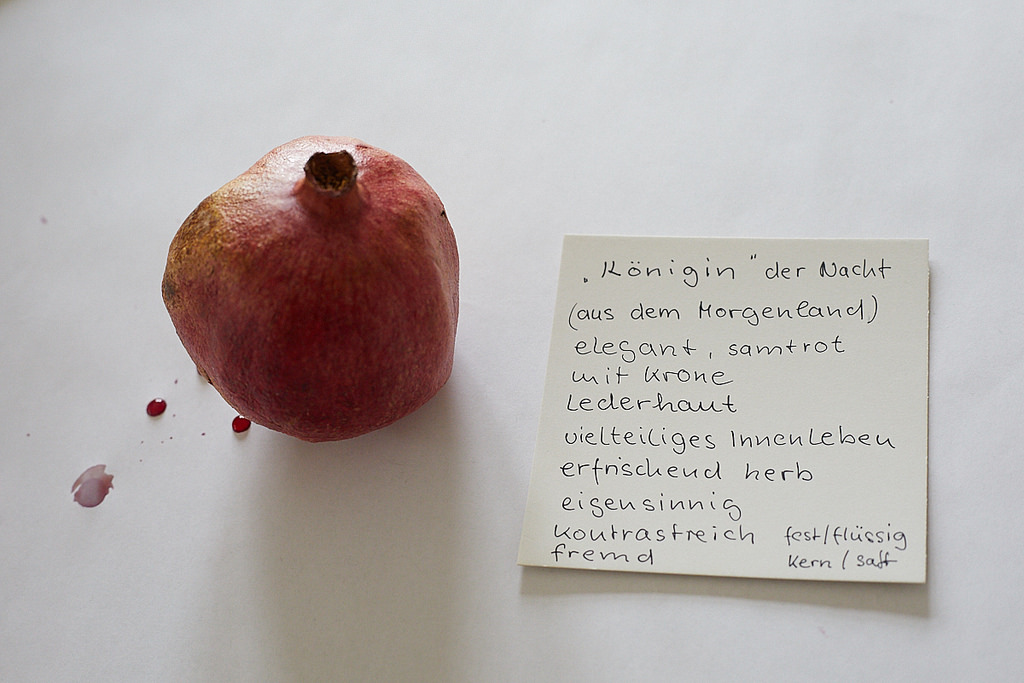 „Königin" der Nacht
(aus dem Morgenland)
elegant, samtrot
mit Krone
Lederhaut
vielteiliges Innenleben
erfrischend herb
eigensinnig
kontrastreich fest/flüssig
fremd Kern / Saft